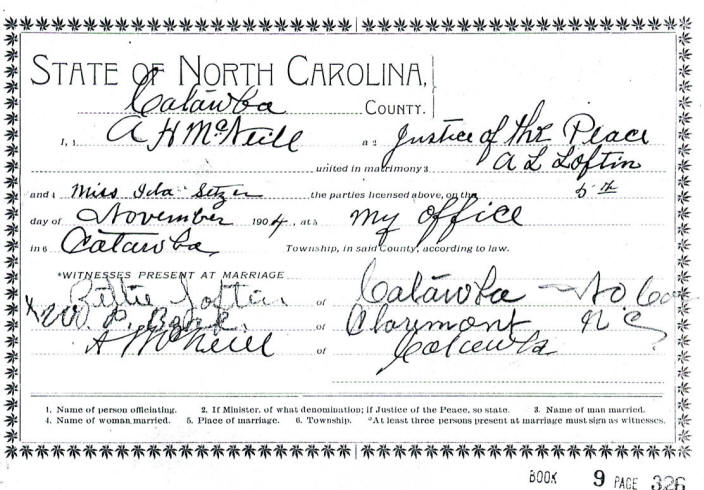 STATE OF NORTH CAROLINA,
Catawba COUNTY.
I, 1 A H McNeill a 2 Justice of the Peace
united in matrimony 3 A L Loftin
and 4 Miss Ida Setzer the parties licensed above, on the 5th
day of November 1904, at 5 my office
in 6 Catawba Township, in said County, according to law.
*WITNESSES PRESENT AT MARRIAGE
Loftin of Catawba
W. P. of Claremont N C
A McNeill of Catawba
1. Name of person officiating. 2. If Minister, of what denomination; if Justice of the Peace, so state. 3. Name of man married.
4. Name of woman married. 5. Place of marriage. 6. Township. *At least three persons present at marriage must sign as witnesses.
BOOK 9 PAGE 326